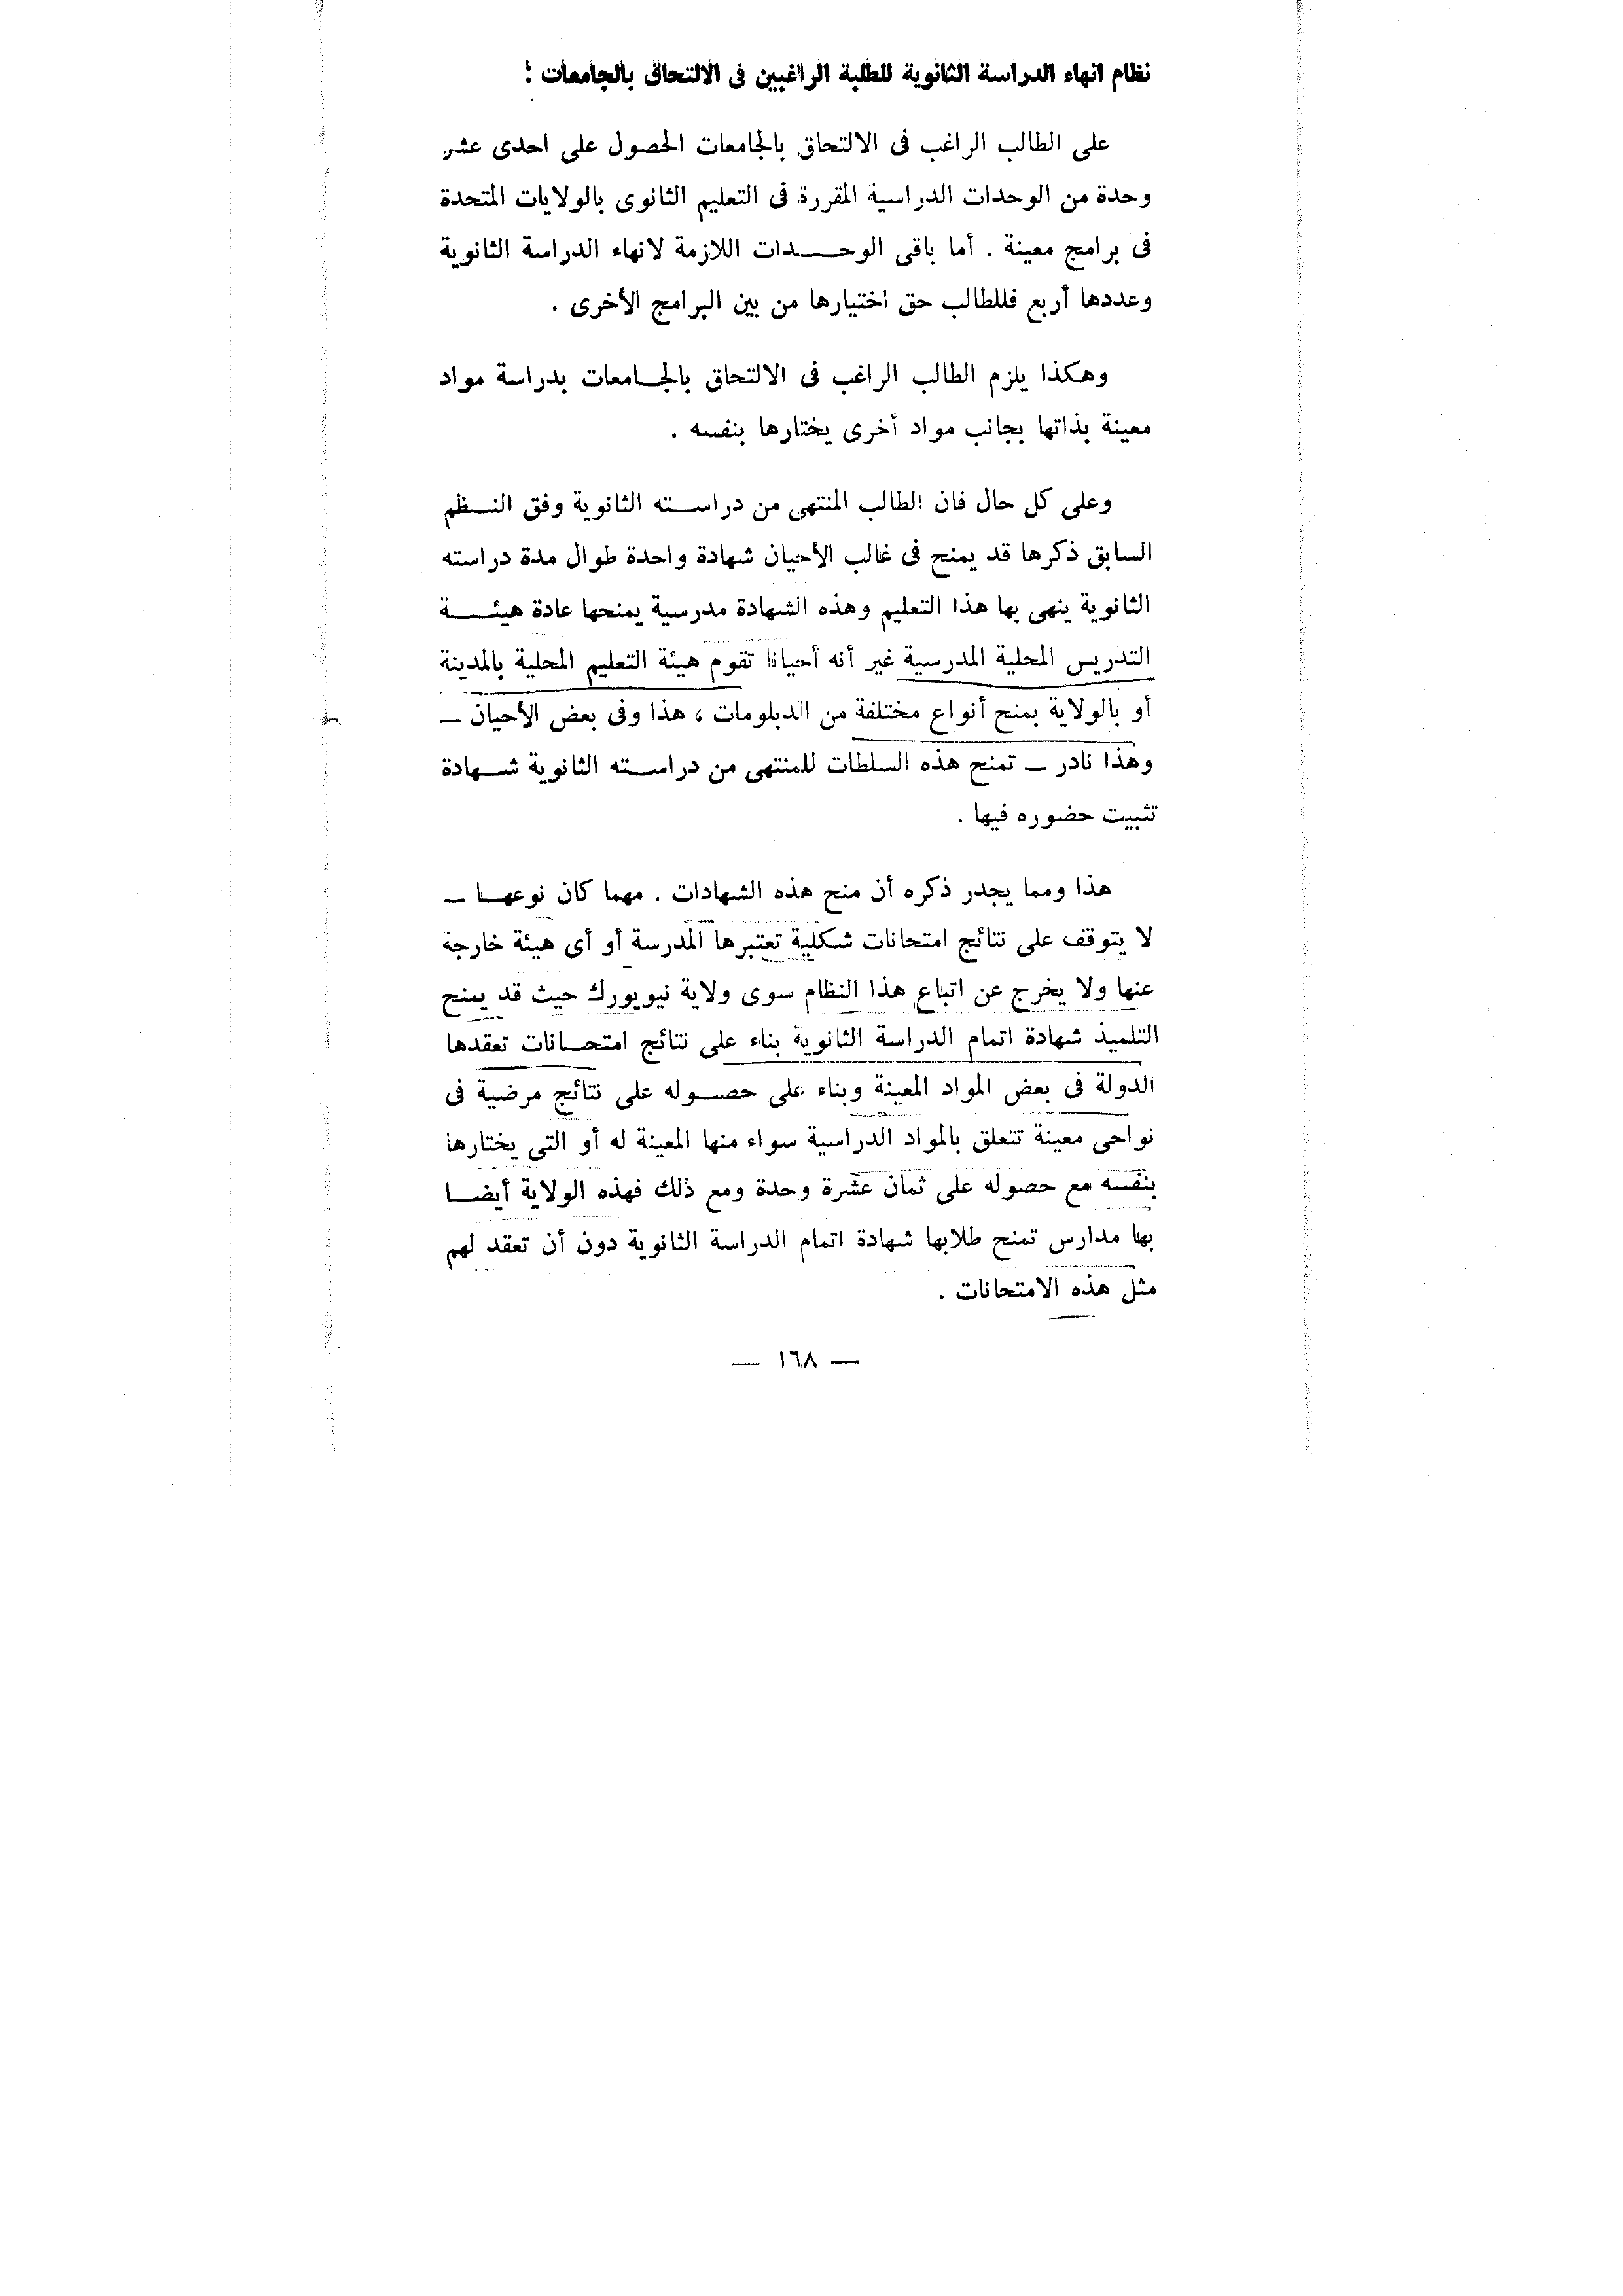 نظام انهاء الدراسة الثانوية للطلبة الراغبين فى الالتحاق بالجامعات :
على الطالب الراغب فى الالتحاق بالجامعات الحصول على احدى عشر
وحدة من الوحدات الدراسية المقررة فى التعليم الثانوى بالولايات المتحدة
فى برامج معينة . أما باقى الوحدات اللازمة لانهاء الدراسة الثانوية
وعددها أربع فللطالب حق اختيارها من بين البرامج الأخرى .
وهكذا يلزم الطالب الراغب فى الالتحاق بالجامعات بدراسة مواد
معينة بذاتها بجانب مواد أخرى يختارها بنفسه .
وعلى كل حال فان الطالب المنتهى من دراسته الثانوية وفق النظم
السابق ذكرها قد يمنح فى غالب الأحيان شهادة واحدة طوال مدة دراسته
الثانوية ينهى بها هذا التعليم وهذه الشهادة مدرسية يمنحها عادة هيئة
التدريس المحلية المدرسية غير أنه أحيانا تقوم هيئة التعليم المحلية بالمدينة
أو بالولاية بمنح أنواع مختلفة من الدبلومات ، هذا وفى بعض الأحيان —
وهذا نادر — تمنح هذه السلطات للمنتهى من دراسته الثانوية شهادة
تثبيت حضوره فيها .
هذا ومما يجدر ذكره أن منح هذه الشهادات . مهما كان نوعها —
لا يتوقف على نتائج امتحانات شكلية تعتبرها المدرسة أو أى هيئة خارجة
عنها ولا يخرج عن اتباع هذا النظام سوى ولاية نيويورك حيث قد يمنح
التلميذ شهادة اتمام الدراسة الثانوية بناء على نتائج امتحانات تعقدها
الدولة فى بعض المواد المعينة وبناء على حصوله على نتائج مرضية فى
نواحى معينة تتعلق بالمواد الدراسية سواء منها المعينة له أو التى يختارها
بنفسه مع حصوله على ثمان عشرة وحدة ومع ذلك فهذه الولاية أيضا
بها مدارس تمنح طلابها شهادة اتمام الدراسة الثانوية دون أن تعقد لهم
مثل هذه الامتحانات .
— ١٦٨ —